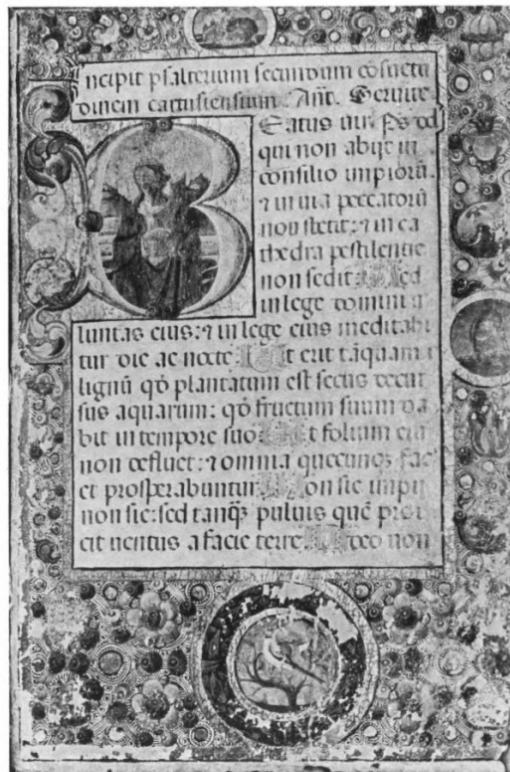 ncipit psalterium secundum cōsuetu
dinem cartusiensium. Ant. Seruite
Eatus uir. ps dd
qui non abijt in
consilio impiorū.
⁊ in uia peccatorū
non stetit: ⁊ in ca
thedra pestilentie
non sedit: Sed
in lege domini
luntas eius: ⁊ in lege eius meditabi
tur die ac nocte: Et erit tāquam
lignū qd̄ plantatum est secus decur
sus aquarum: qd̄ fructum suum da
bit in tempore suo Et folium eiu
non defluet: ⁊ omnia quecunqꝫ fac
et prosperabuntur. Non sic impii
non sic: sed tanqꝫ puluis quē proi
cit uentus a facie terre. Ideo non